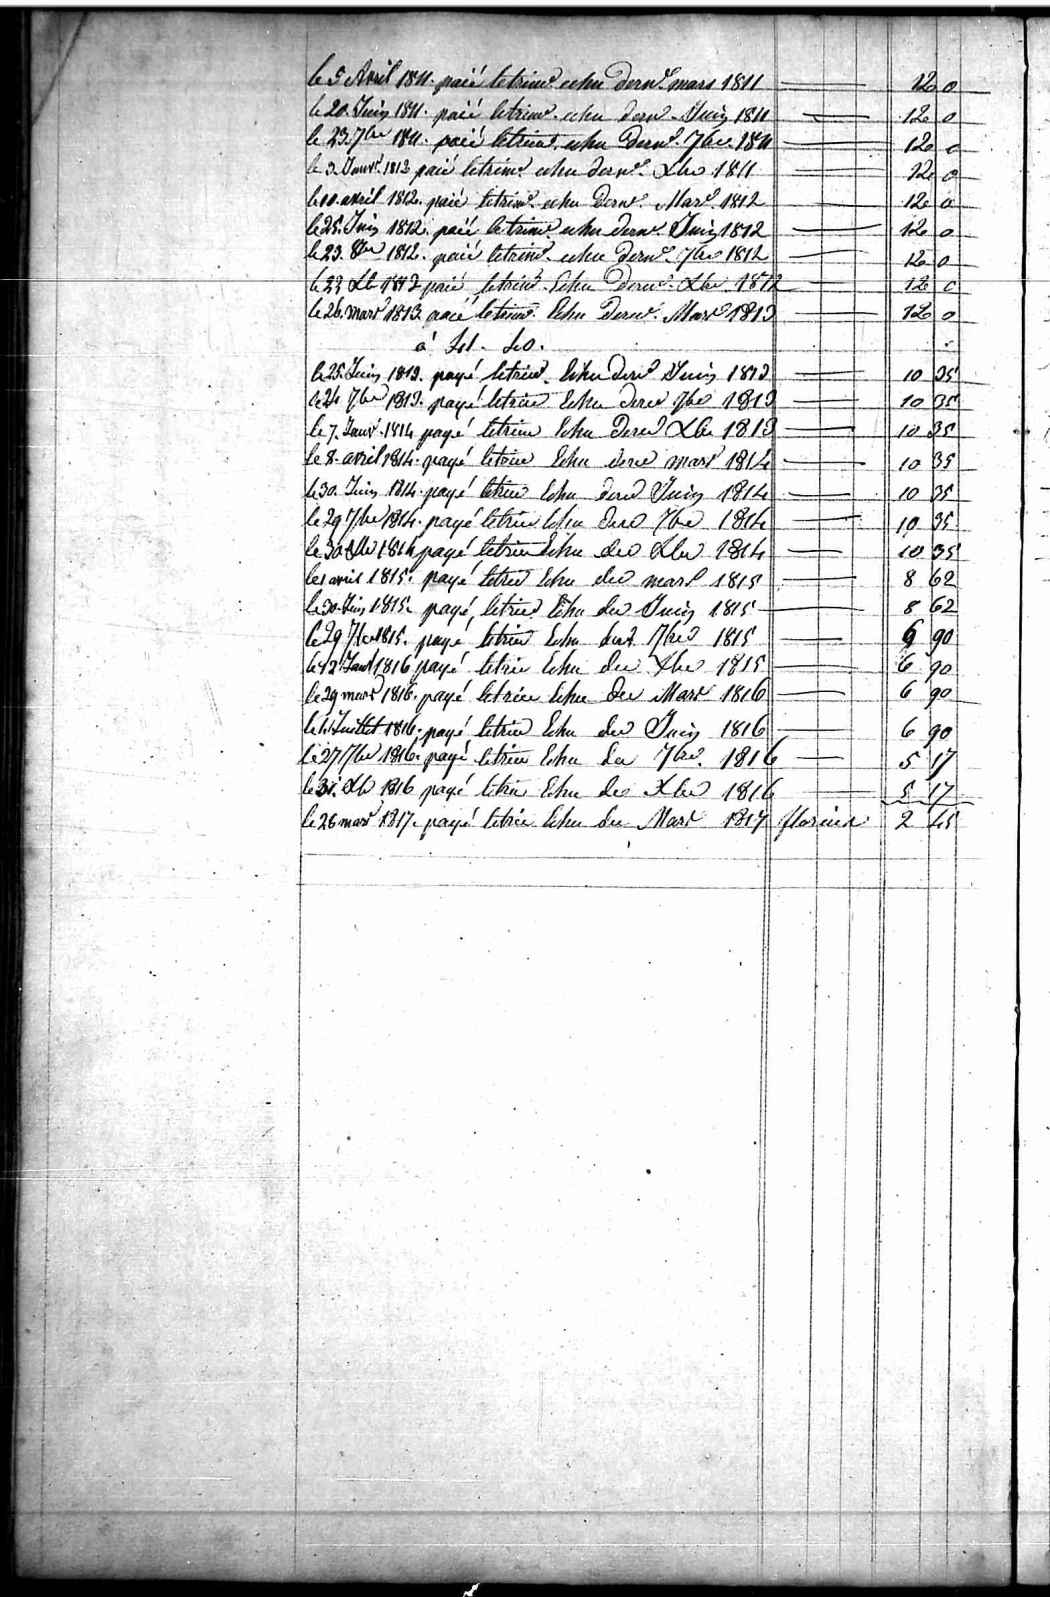 le 5 Avril 1811. paié le trimre echu dernr mars 1811 12 0
le 20. Juin 1811. paié le trimre echu dernr Juin 1811 12 0
le 23. 7bre 1811. paié le trimre echu Dernr 7bre 1811 12 0
le 3. Janvr. 1812 paié le trimre echu dernr Xbre 1811 12 0
le 10. avril 1812. paié le trimre echu Dernr Mars 1812 12 0
le 25. Juin 1812. paié le trimre echu dernr Juin 1812 12 0
le 23. 1812. paié le trimre echu dernr 7bre 1812 12 0
le 23 Xb 1812 paié le trimre Echu Dernr Xbre 1812 12 0
le 26. mars 1813. paié le trimre Echu Dernr Mars 1813 12 0
à
le 25. Juin 1813. payé le trimre Echu dernr Juin 1813 10 35
le 24 7bre 1813. payé le trimre Echu dernr 7bre 1813 10 35
le 7. Janvr. 1814 payé le trimre Echu Dernr Xbre 1813 10 35
le 8. avril 1814. payé le trimre Echu dernr mars 1814 10 35
le 30. Juin 1814. payé le trimre Echu dernr Juin 1814 10 35
le 29 7bre 1814. payé le trimre Echu dernr 7bre 1814 10 35
le 30 Xbre 1814 payé le trimre Echu der Xbre 1814 10 35
le 1 avril 1815. payé le trimre Echu der mars 1815 8 62
le 30. Juin 1815. payé le trimre Echu der Juin 1815 8 62
le 29 7bre 1815. payé le trimre Echu der 7bre 1815 6 90
le 12 Janr 1816 payé le trimre Echu der Xbre 1815 6 90
le 29 mars 1816. payé le trimre Echu der Mars 1816 6 90
le 1. Juillet 1816. payé le trimre Echu der Juin 1816 6 90
le 27 7bre 1816. payé le trimre Echu der 7bre. 1816 5 17
le 31. Xb 1816 payé le trimre Echu der Xbre 1816 5 17
le 26 mars 1817. payé le trimre Echu der Mars 1817 florins 2 45